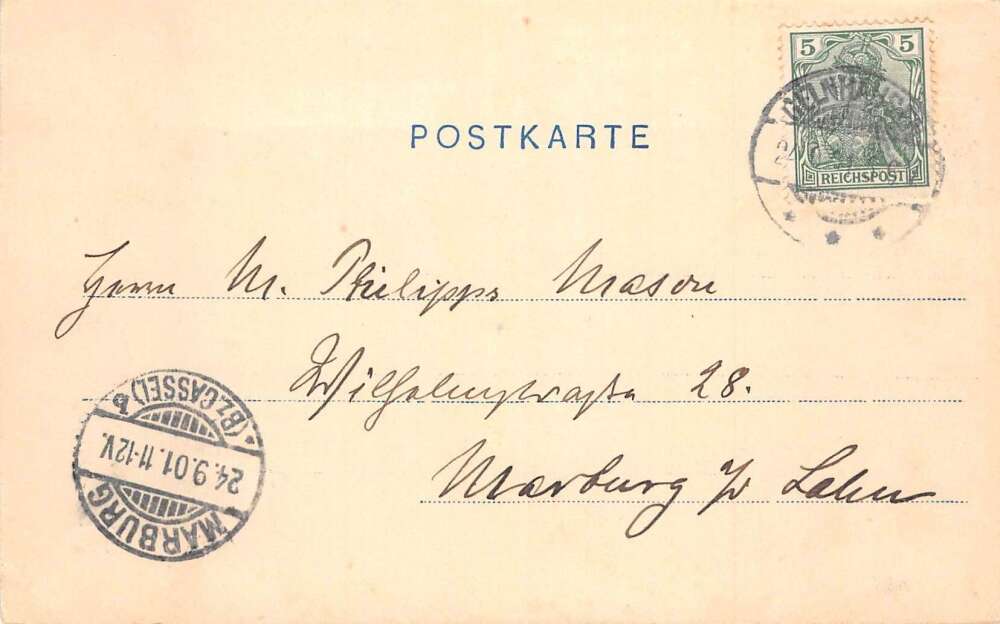 5 5
REICHSPOST
POSTKARTE
Herrn M. Philipps Mason
Wilhelmstraße 28.
Marburg a/ Lahn
MARBURG
24.9.01.11-12V.
(Bz.CASSEL) b